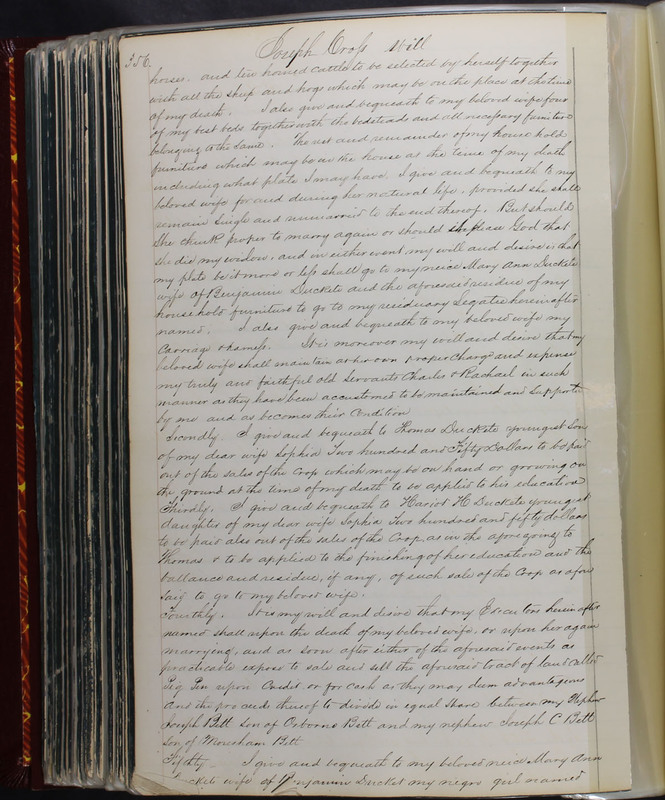 356. Joseph Cross Will
horses. and ten horned cattle to be selected by herself together
with all the sheep and hogs which may be on the place at the time
of my death. I also give and bequeath to my beloved wife four
of my best beds together with the bedsteads and all necessary furniture
belonging to the same. The rest and remainder of my house hold
furniture which may be in the house at the time of my death
including what plate I may have I give and bequeath to my
beloved wife for and during her natural life, provided she shall
remain single and unmarried to the end thereof. But should
she think proper to marry again or should please God that
she die my widow, and in either event my will and desire is that
my plate be it more or less shall go to my neice Mary Ann Duckett
wife of Benjamin Duckett and the aforesaid residue of my
household furniture to go to my residuary Legatee herein after
named. I also give and bequeath to my beloved wife my
Carriage & harness. It is moreover my will and desire that my
beloved wife shall maintain at her own proper Charge and expense
my truly and faithful old Servants Charles & Rachael in such
manner as they have been accustomed to be maintained and supported
by me and as becomes their Condition
Secondly. I give and bequeath to Thomas Duckett youngest Son
of my dear wife Sophia Two hundred and Fifty Dollars to be paid
out of the sales of the Crop which may be on hand or growing on
the ground at the time of my death to be applied to his education
Thirdly. I give and bequeath to Hariot H Duckett youngest
daughter of my dear wife Sophia Two hundred and fifty dollars
to be paid also out of the sales of the Crop, as in the aforegoing to
Thomas & to be applied to the finishing of her education and the
ballance and residue, if any, of such sale of the Crop as afore
said to go to my beloved wife.
Fourthly. It is my will and desire that my Executors herein after
named shall upon the death of my beloved wife, or upon her again
marrying, and as soon after either of the aforesaid events as
practicable expose to sale and sell the aforesaid tract of land called
Pig Pen upon Credit or for cash as they may deem advantageous
and the proceeds thereof to divide in equal share between my Nephew
Joseph Bett Son of Osborne Bett and my nephew Joseph C Bett
Son of Bett
Fifthly - I give and bequeath to my beloved neice Mary Ann
Duckett wife of Benjamin Ducket my negro girl named